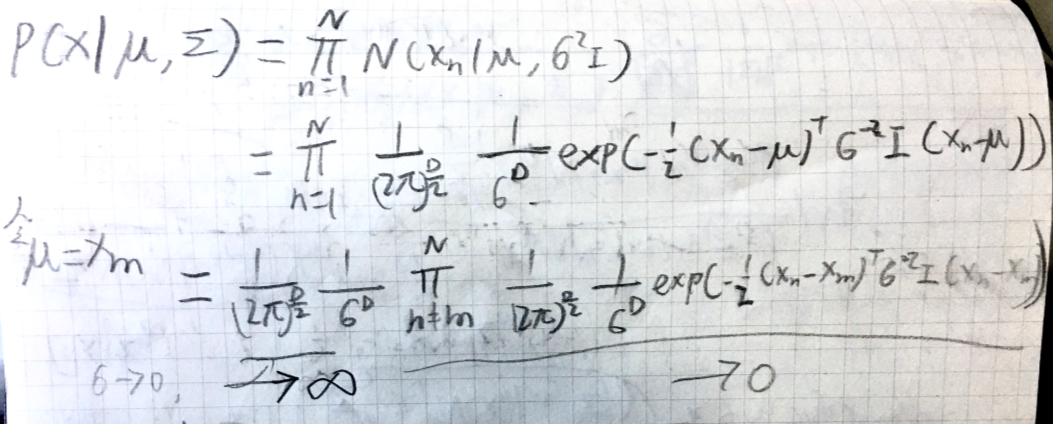 P(X|μ, Σ) = ∏_{n=1}^{N} N(x_n|μ, σ²I)
= ∏_{n=1}^{N} 1/(2π)^{D/2} 1/σ^D exp(-1/2 (x_n-μ)^T σ^{-2} I (x_n-μ))
令 μ=x_m = 1/(2π)^{D/2} 1/σ^D ∏_{n≠m}^{N} 1/(2π)^{D/2} 1/σ^D exp(-1/2 (x_n-x_m)^T σ^{-2} I (x_n-x_m))
σ→0, →∞ →0